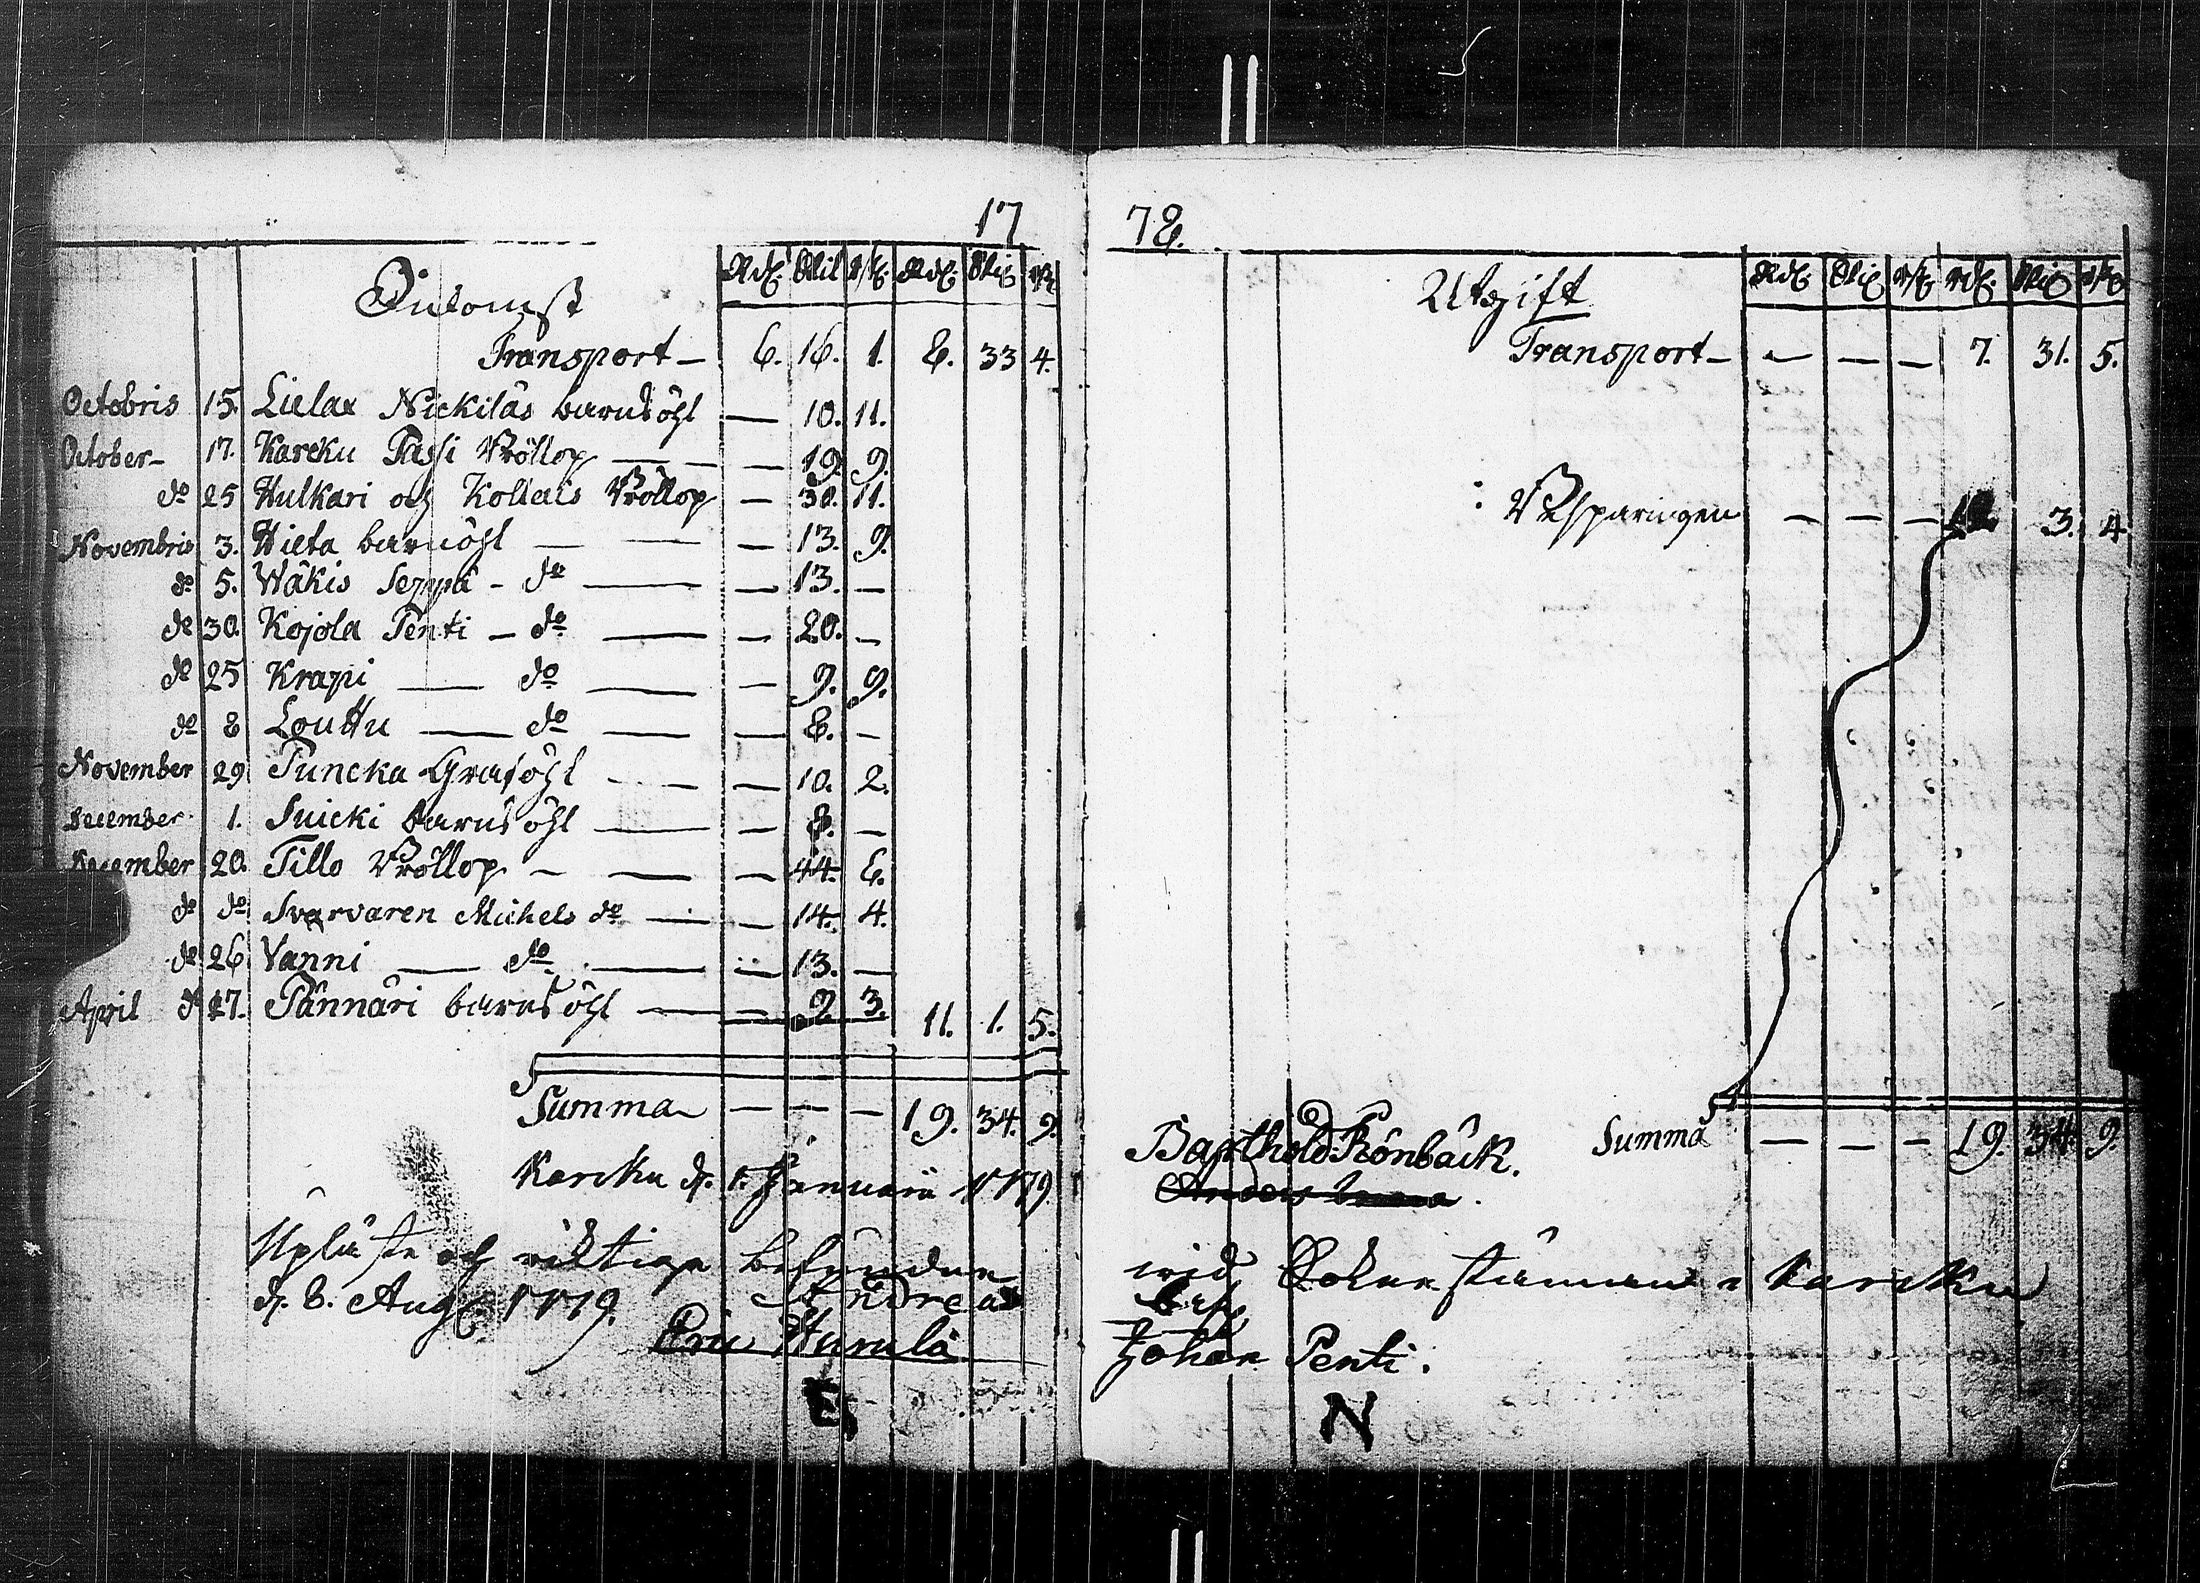 17
Inkomst Rdr. Skil r/st. Rdr. Skil r/st
Transport – 6. 16. 1. 8. 33 4.
Octobris 15. Lielax Nickiläs barns öhl — 10. 11.
October – 17. Karcku Passi Bröllop — — — 19. 9.
do 25 Hulkari och Kollais Bröllop — 30. 11.
Novembris 3. Hieta barnöhl — — — 13. 9.
do 5. Wäkis Seppä – do — — 13. —
do 30. Kojola Penti – do — — 20. —
do 25 Krapi — do — — 9. 9.
do 8 Louttu — do — — 8. —
November 29 Puncka Graföhl — — — 10. 2.
December 1. Suicki barns öhl — — 8. —
December 20. Tillo Bröllop – — — 44. 6.
do do Svarvaren Michels do — — 14. 4.
do 26 Vanni — do — — 13. —
April d. 17. Pännäri barns öhl — — 2 3. 11. 1. 5.
Summa — — — 19. 34. 9.
Karcku d. 1. Januarii 1779
Upläste och riktiga befundne
d. 8. Aug 1779. Andreas
Eric Hurula
E
78.
Utgift Rdr. Skil r/st rdr. Skil r/st
Transport – — — — 7. 31. 5.
: Besparingen — — — 12. 3. 4.
Summa — — — 19. 34. 9.
Barthold Rönbäck.
wid Sokne stämman i Karcku
Johan Penti.
N